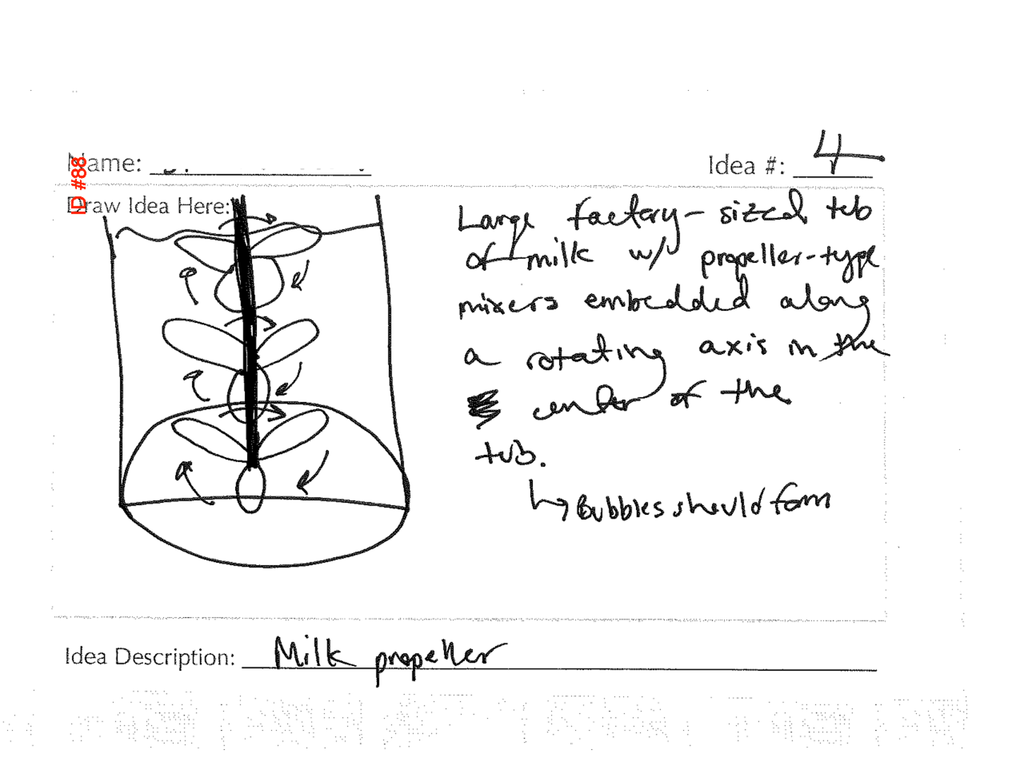 ID #88
Name:
Idea #: 4
Draw Idea Here:
Large factory-sized tub
of milk w/ propeller-type
mixers embedded along
a rotating axis in the
center of the
tub.
↳ Bubbles should form
Idea Description: Milk propeller